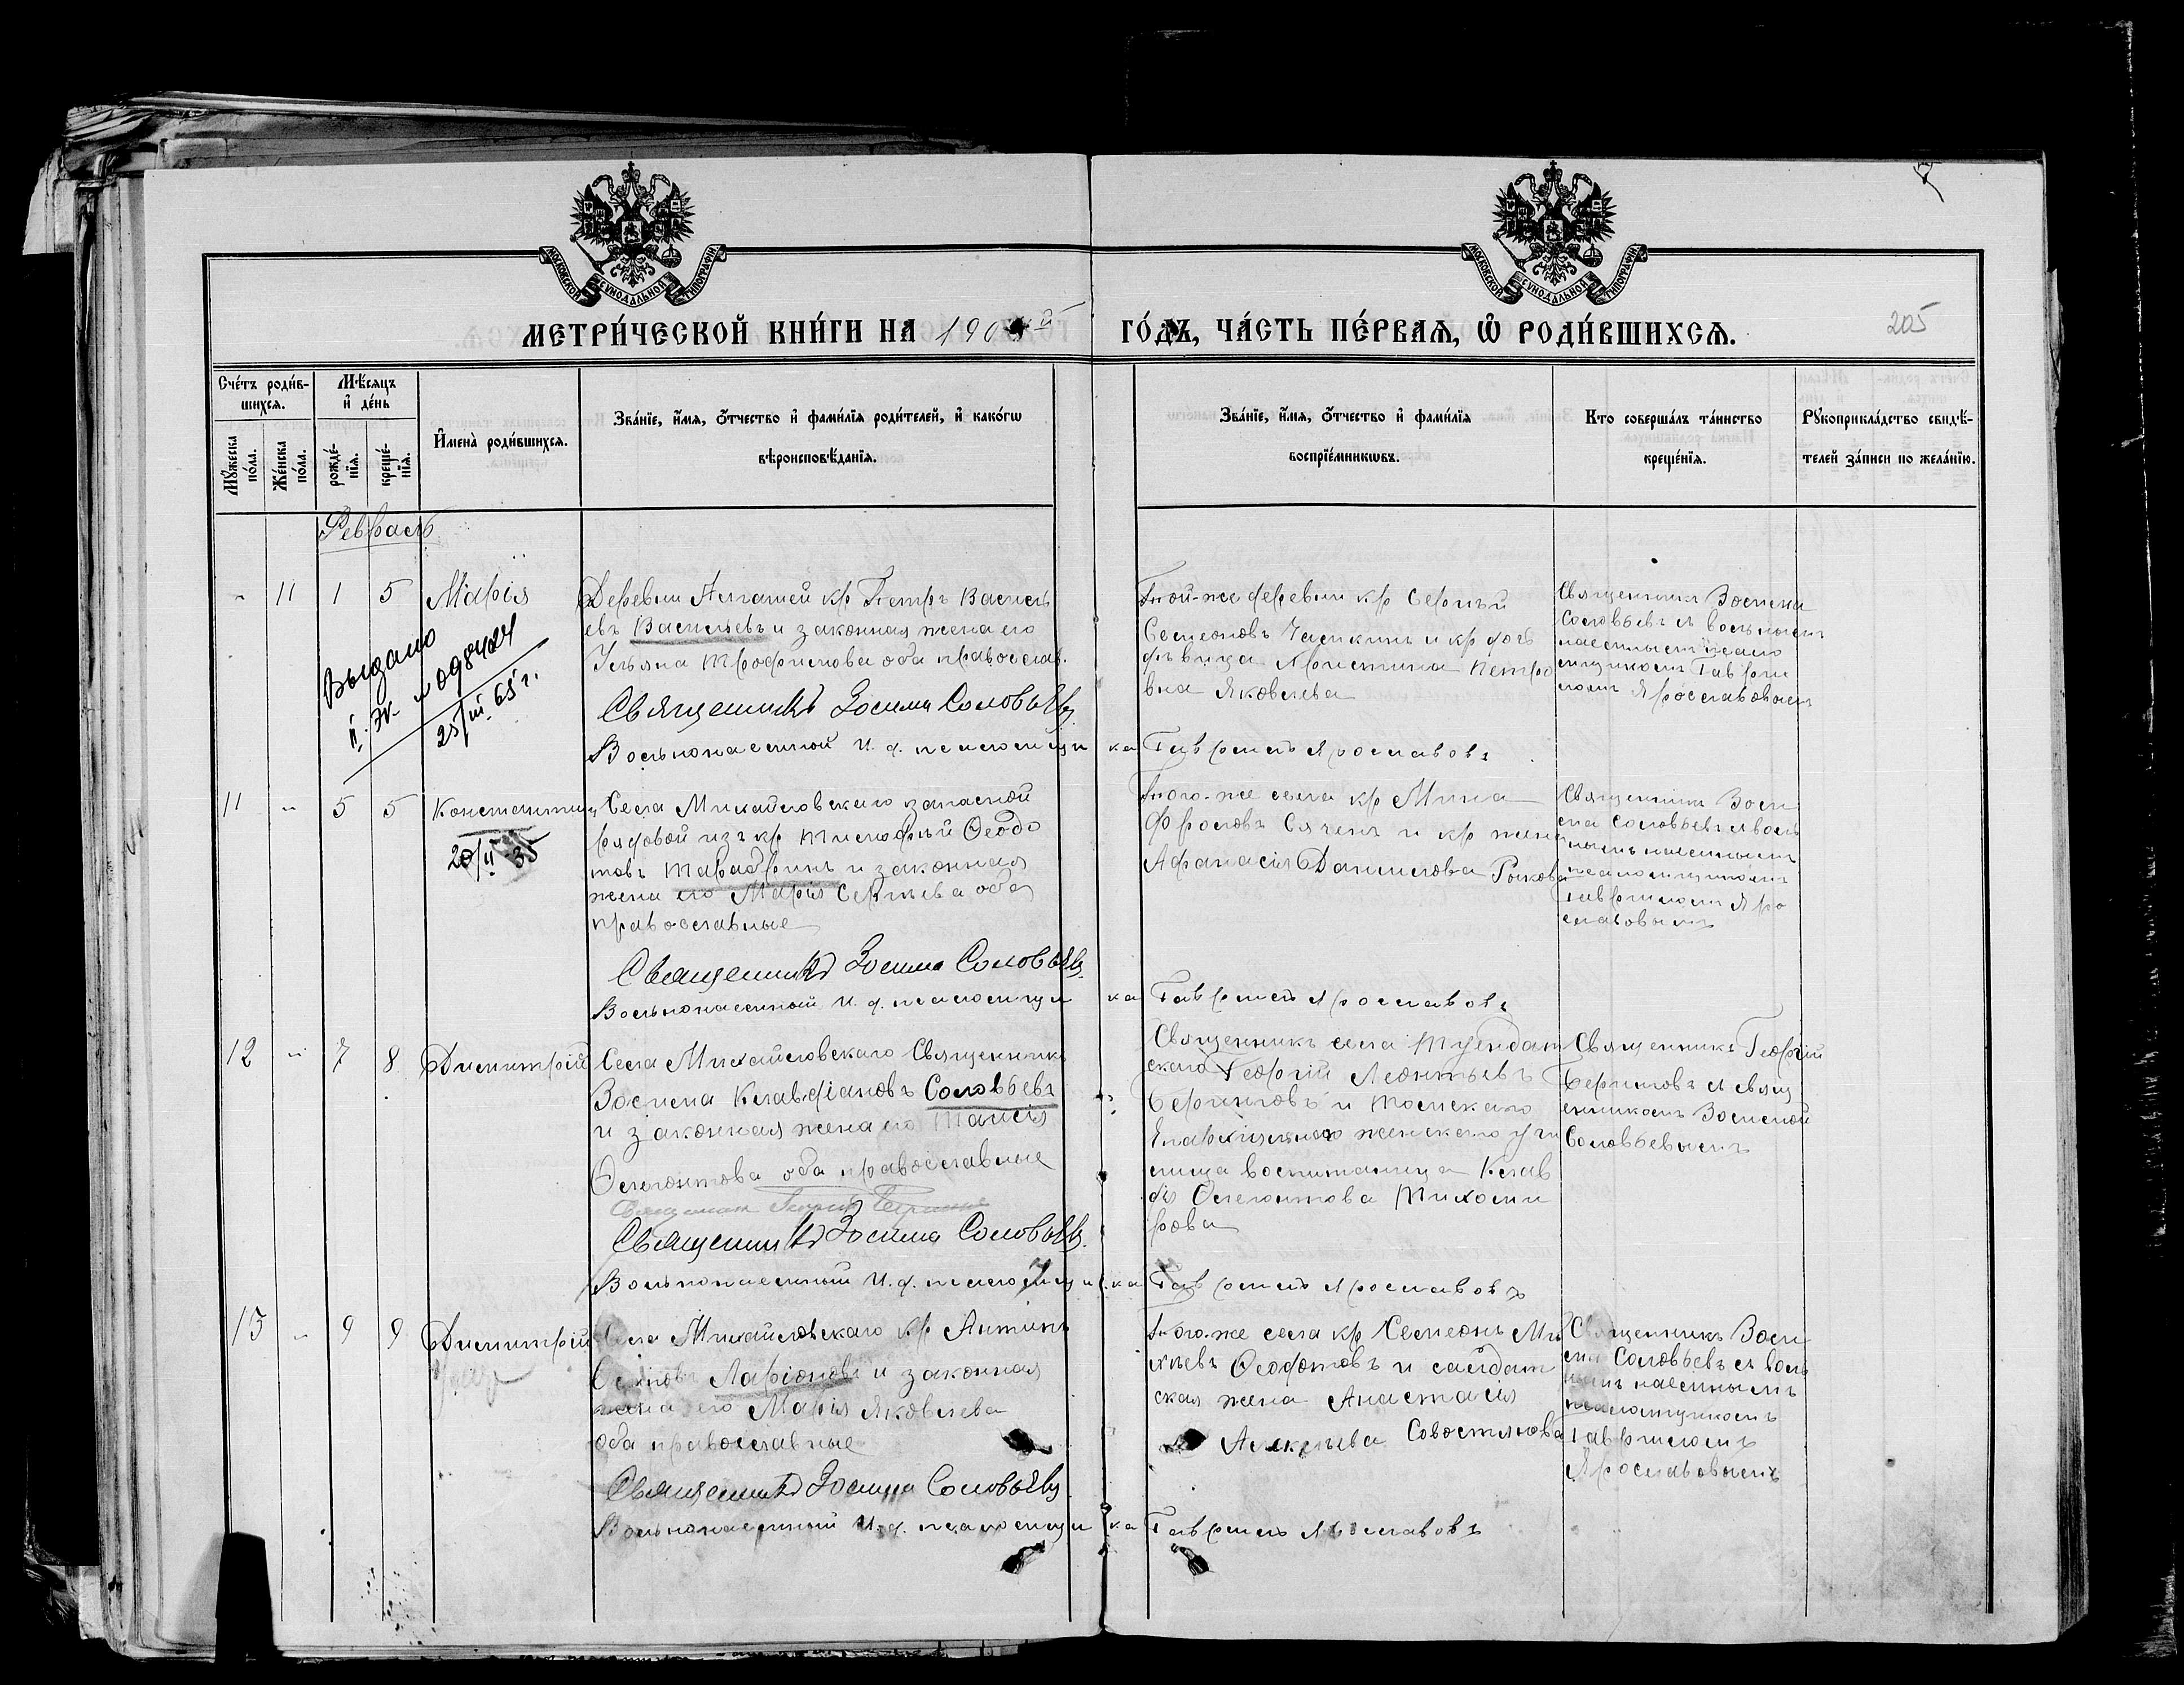 МОСКОВСКОЙ СѴНОДАЛЬНОЙ ТИПОГРАФІИ
МОСКОВСКОЙ СѴНОДАЛЬНОЙ ТИПОГРАФІИ
МЕТРИ́ЧЕСКОЙ КНИ́ГИ НА 190 й
ГО́ДЪ, ЧА́СТЬ ПЕ́РВАѦ, Ѡ҆ РОДИ́ВШИХСѦ.
205
Сче́тъ роди́в-
шихсѧ.
Мѣ́сѧцъ
и҆ де́нь
Мꙋ́жеска
по́ла.
Же́нска
по́ла.
рожде́-
нїѧ.
креще́-
нїѧ.
И҆мена̀ роди́вшихсѧ.
Зва́нїе, и҆́мѧ, ѻ҆́тчество и҆ фами́лїѧ роди́телей, и҆ како́гѡ
вѣроисповѣ́данїѧ.
Зва́нїе, и҆́мѧ, ѻ҆́тчество и҆ фами́лїѧ
воспрїе́мникѡвъ.
Кто соверша́лъ та́инство
креще́нїѧ.
Рꙋкоприкла́дство свидѣ́-
телей за́писи по жела́нїю.
Февраль
" 11 1 5 Марія
Деревни кр Петръ Василь
евъ Васильевъ и законная жена его
Ульяна Трофимова оба православ.
Священникъ Зосима Соловьевъ.
Вольнонаемный И. д. псаломщика Гавріилъ Ярославовъ
Выдано
II. Эк. № 098424
25/III 65 г.
Той-же деревни кр Сергѣй
Семеоновъ Чашкинъ и кр дочь
дѣвица Христина Петро
вна Яковлева
Священникъ Зосима
Соловьевъ съ вольнымъ
наемнымъ псало
мщикомъ Гаврі
иломъ Ярославовымъ
11 " 5 5 Константинъ
20/II 35
Села Михайловскаго запасной
рядовой изъ кр Тимофѣй Ѳеодо
товъ и законная
жена его Марія Сергѣева оба
православные
Священникъ Зосима Соловьевъ.
Вольнонаемный И. д. псаломщика Гавріилъ Ярославовъ
Того-же села кр Мина
Фроловъ и кр жена
Афанасія Данилова Рыкова
Священникъ Зоси
ма Соловьевъ съ воль
нымъ наемнымъ
псаломщикомъ
Гавріиломъ Яро
славовымъ
12 " 7 8 Димитрій
Села Михайловскаго Священникъ
Зосима Клавдіановъ Соловьевъ
и законная жена его Таисія
оба православные
Священникъ Зосима Соловьевъ.
Вольнонаемный И. д. псаломщика Гавріилъ Ярославовъ
Священникъ села Тутендат
скаго Георгій Леонтьевъ
Беринговъ и Томскаго
Епархіальнаго женскаго учи
лища воспитаница Клав
дія Тихоми
рова
Священникъ Георгій
Беринговъ съ свящ
енникомъ Зосимой
Соловьевымъ
13 " 9 9 Димитрій
Села Михайловскаго кр Антипъ
Ларіоновъ и законная
жена его Марія Яковлева
оба православные
Священникъ Зосима Соловьевъ
Вольнонаемный И. д. псаломщика Гавріилъ Ярославовъ
Того-же села кр Семеонъ Ми
хѣевъ Ѳедотовъ и салдат
ская жена Анастасія
Алексѣева Совостянова
Священникъ Зоси
ма Соловьевъ съ воль
нымъ наемнымъ
псаломщикомъ
Гавріиломъ
Ярославовымъ